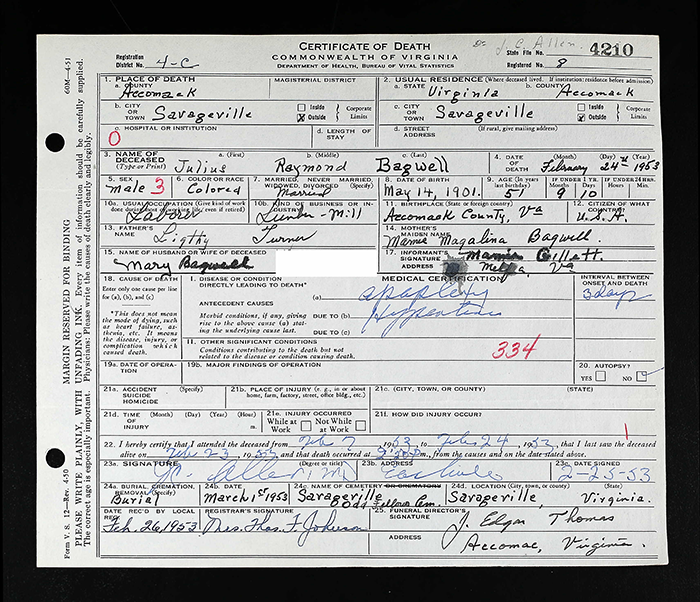 Dr. J. C. Allen
CERTIFICATE OF DEATH
COMMONWEALTH OF VIRGINIA
DEPARTMENT OF HEALTH, BUREAU OF VITAL STATISTICS
Registration District No. 4-C
State File No. 4210
Registered No. 8
60M—4-51
MARGIN RESERVED FOR BINDING
PLEASE WRITE PLAINLY, WITH UNFADING INK. Every item of information should be carefully supplied.
The correct age is especially important. Physicians: Please write the causes of death clearly and legibly.
Form V. S. 12—Rev. 4-50
1. PLACE OF DEATH
a. COUNTY Accomack
MAGISTERIAL DISTRICT
2. USUAL RESIDENCE (Where deceased lived. If institution: residence before admission)
a. STATE Virginia
b. COUNTY Accomack
b. CITY OR TOWN Savageville
Inside Outside Corporate Limits
c. CITY OR TOWN Savageville
Inside Outside Corporate Limits
c. HOSPITAL OR INSTITUTION
0
d. LENGTH OF STAY
d. STREET ADDRESS (If rural, give mailing address)
3. NAME OF DECEASED (Type or Print)
a. (First) Julius
b. (Middle) Raymond
c. (Last) Bagwell
4. DATE OF DEATH (Month) (Day) (Year) February 24th 1953
5. SEX male 3
6. COLOR OR RACE Colored
7. MARRIED, NEVER MARRIED, WIDOWED, DIVORCED Married
8. DATE OF BIRTH May 14, 1901.
9. AGE (In years last birthday) 51
IF UNDER 1 YR. 9 10
IF UNDER 24 HRS.
10a. USUAL OCCUPATION (Give kind of work done during most of working life, even if retired) Laborer
10b. KIND OF BUSINESS OR INDUSTRY Lumber-Mill
11. BIRTHPLACE (State or foreign country) Accomack County, Va
12. CITIZEN OF WHAT COUNTRY? U.S.A.
13. FATHER'S NAME Ligthy Turner
14. MOTHER'S MAIDEN NAME Mamie Magalina Bagwell.
15. NAME OF HUSBAND OR WIFE OF DECEASED Mary Bagwell
17. INFORMANT'S SIGNATURE Mamie Gillett.
ADDRESS Melfa, Va
18. CAUSE OF DEATH
Enter only one cause per line for (a), (b), and (c)
*This does not mean the mode of dying, such as heart failure, asthenia, etc. It means the disease, injury, or complication which caused death.
MEDICAL CERTIFICATION
INTERVAL BETWEEN ONSET AND DEATH
I. DISEASE OR CONDITION DIRECTLY LEADING TO DEATH* (a) apoplexy 3 days
ANTECEDENT CAUSES
Morbid conditions, if any, giving rise to the above cause (a) stating the underlying cause last.
DUE TO (b) Hypertension
DUE TO (c)
II. OTHER SIGNIFICANT CONDITIONS
Conditions contributing to the death but not related to the disease or condition causing death.
334
19a. DATE OF OPERATION
19b. MAJOR FINDINGS OF OPERATION
20. AUTOPSY?
YES NO
21a. ACCIDENT SUICIDE HOMICIDE (Specify)
21b. PLACE OF INJURY (e. g., in or about home, farm, factory, street, office bldg., etc.)
21c. (CITY, TOWN, OR COUNTY) (STATE)
21d. TIME OF INJURY (Month) (Day) (Year) (Hour) m.
21e. INJURY OCCURRED
While at Work Not While at Work
21f. HOW DID INJURY OCCUR?
22. I hereby certify that I attended the deceased from Feb 7, 1953, to Feb 24, 1953, that I last saw the deceased
alive on Feb 23, 1953, and that death occurred at m., from the causes and on the date stated above.
23a. SIGNATURE (Degree or title)
23b. ADDRESS
23c. DATE SIGNED 2-25-53
24a. BURIAL, CREMATION, REMOVAL (Specify) Burial
24b. DATE March 1st 1953
24c. NAME OF CEMETERY OR CREMATORY Savageville Odd Fellows Cem.
24d. LOCATION (City, town, or county) (State) Savageville, Virginia.
DATE REC'D BY LOCAL REG. Feb. 26, 1953
REGISTRAR'S SIGNATURE Mrs. Thos. F. Johnson
25. FUNERAL DIRECTOR'S SIGNATURE J. Edgar Thomas
ADDRESS Accomac, Virginia.